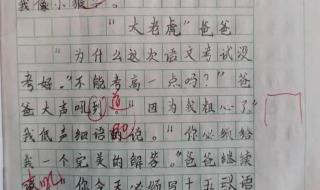 我像小猴子。
"大老虎"爸爸
"为什么这次语文考试没
考好。"不能考高一点吗?"爸
爸大声吼到道"因为我粗心了。"
我低声细语的说。"你必须给
我一个完美的解答。"爸爸继续
你今天必须写十五